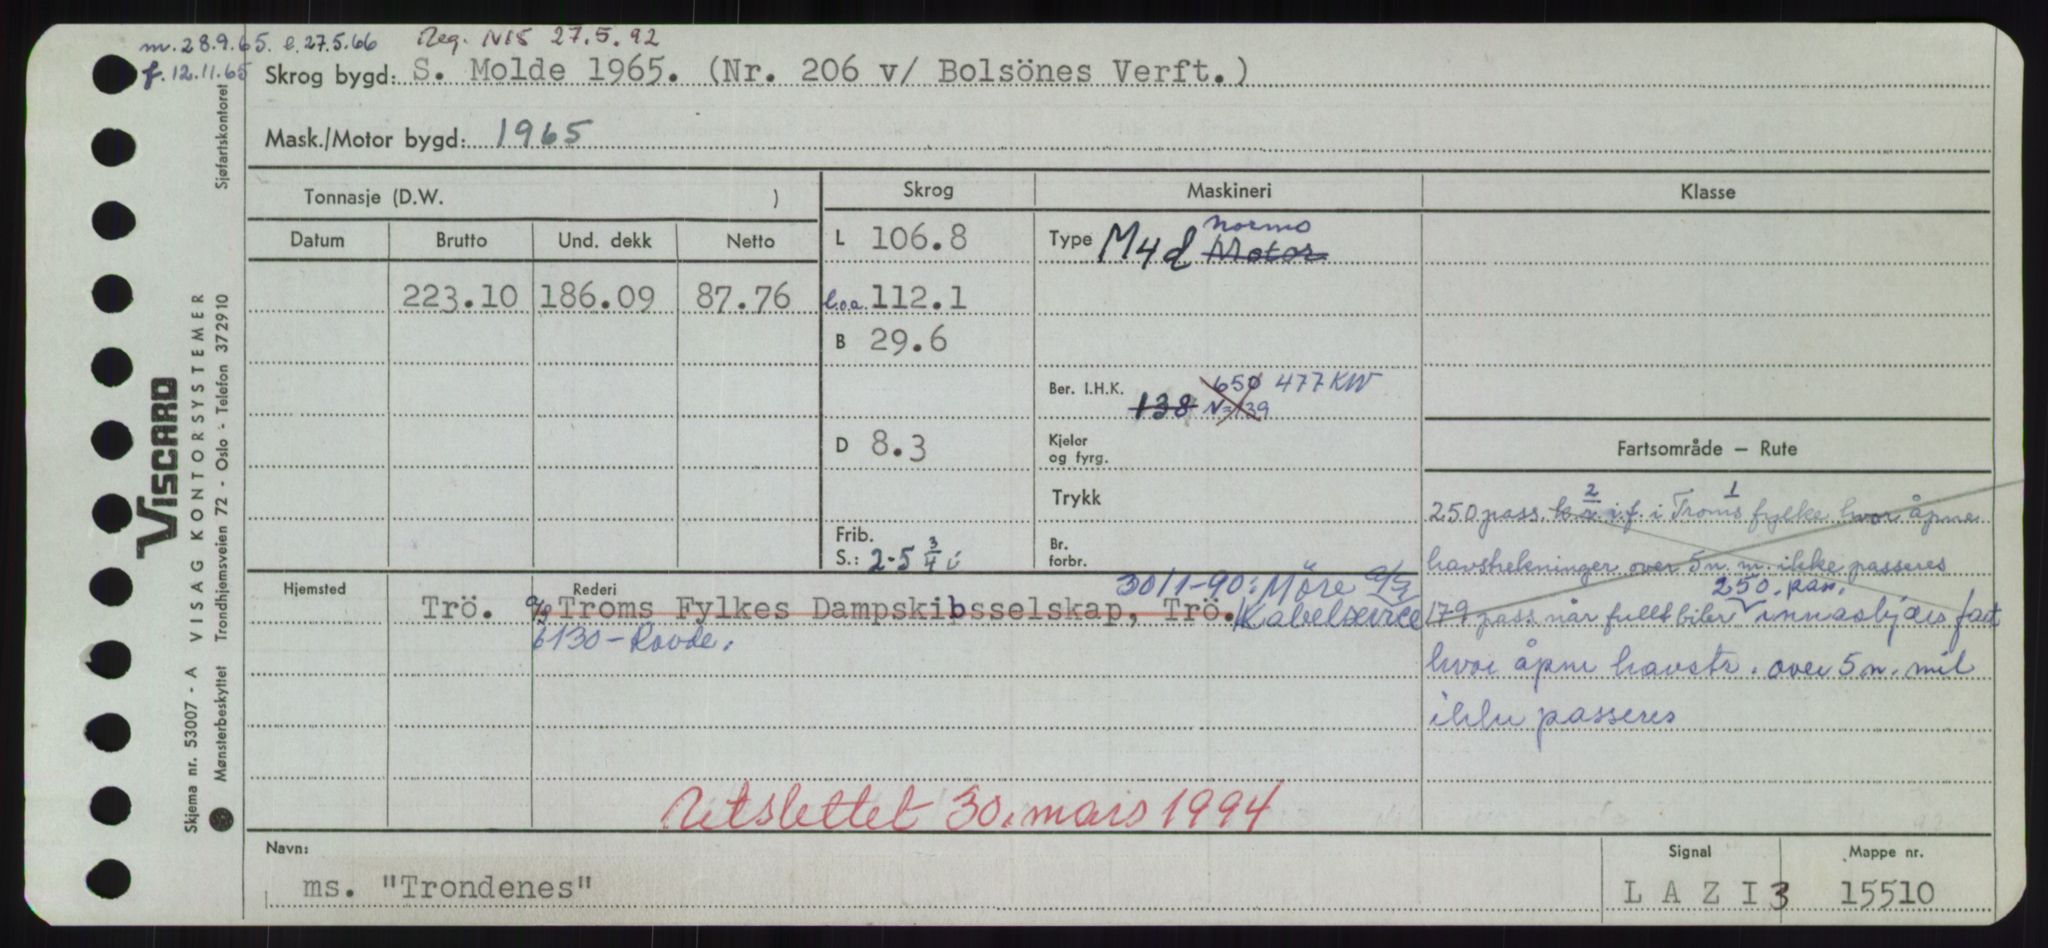 m. 28.9.65. e. 27.5.66 Reg. NIS 27.5.92
f. 12.11.65
Skrog bygd: S. Molde 1965. (Nr. 206 v/ Bolsönes Verft.)
Mask./Motor bygd: 1965
Tonnasje (D.W. )
Skrog
Maskineri
Klasse
Datum Brutto Und. dekk Netto
L 106.8
Type M4d Normo Motor
223.10 186.09 87.76
l.o.a. 112.1
B 29.6
Ber. I.H.K. 138 650 477 KW
N=139
D 8.3
Kjeler
og fyrg.
Trykk
Frib.
S.: 2-5 3/4 i
Br.
forbr.
Fartsområde – Rute
250 pass. i.f. i Troms fylke hvor åpne
havstrekninger over 5 n. m. ikke passeres
250. pas.
179 pass når fullt biler innaskjærs fart
hvor åpne havstr. over 5 n. mil
ikke passeres
Hjemsted
Rederi
30/1-90: Möre
Trö. Troms Fylkes Dampskibsselskap, Trö. Kabelservice
6130 - Rovde.
Utslettet 30. mars 1994
Navn:
ms. "Trondenes"
Signal
L A Z I 3
Mappe nr.
15510
VISCARD
Skjema nr. 53007 - A VISAG KONTORSYSTEMER
Mønsterbeskyttet Trondhjemsveien 72 - Oslo - Telefon 372910 Sjøfartskontoret